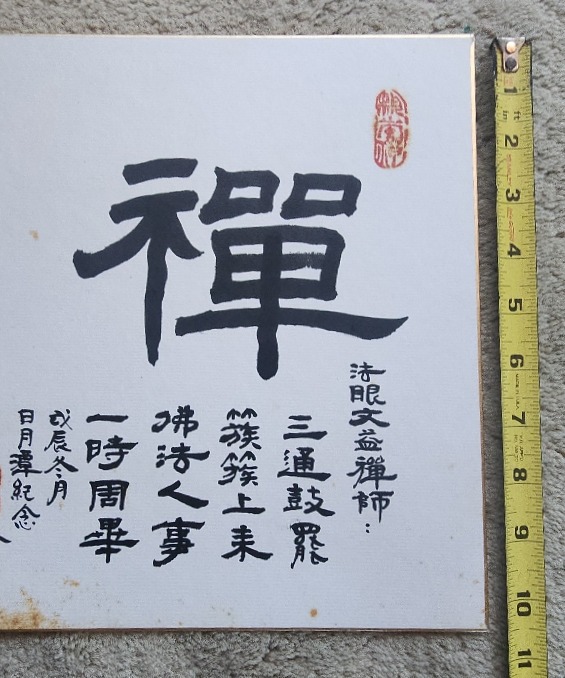 禪
法眼文益禪師：
三通鼓罷
簇簇上来
佛法人事
一時周畢
戊辰冬月
日月潭紀念
1
ft
in
2
3
4
5
6
7
8
9
10
11